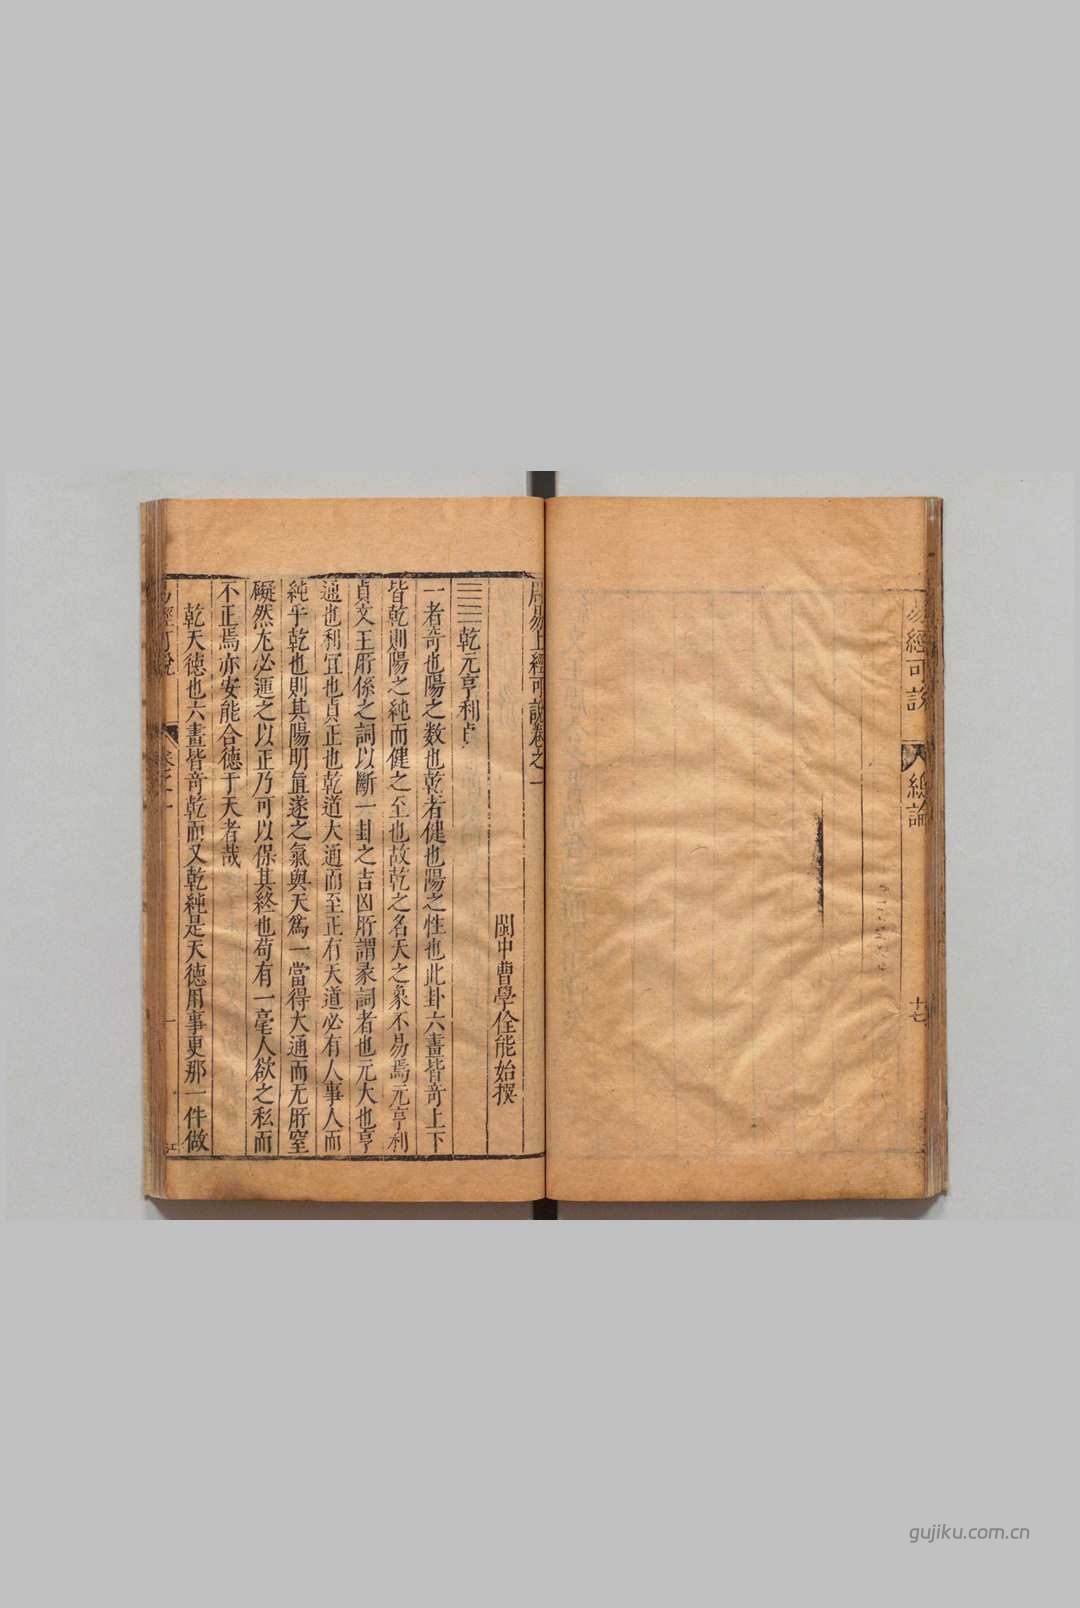 易經可說
總論
十七
周易上經可說卷之一
閩中曹學佺能始撰
乾元亨利貞
一者奇也陽之数也乾者健也陽之性也此卦六畫皆奇上下
皆乾則陽之純而健之至也故乾之名天之象不易焉元亨利
貞文王所係之詞以斷一卦之吉凶所謂彖詞者也元大也亨
通也利宜也貞正也乾道大通而至正有天道必有人事人而
純乎乾也則其陽明直遂之氣與天爲一當得大通而无所窒
礙然尤必運之以正乃可以保其終也苟有一毫人欲之私而
不正焉亦安能合德于天者哉
乾天德也六畫皆奇乾而又乾純是天德用事更那一件做
易經可說
卷之一
一
gujiku.com.cn